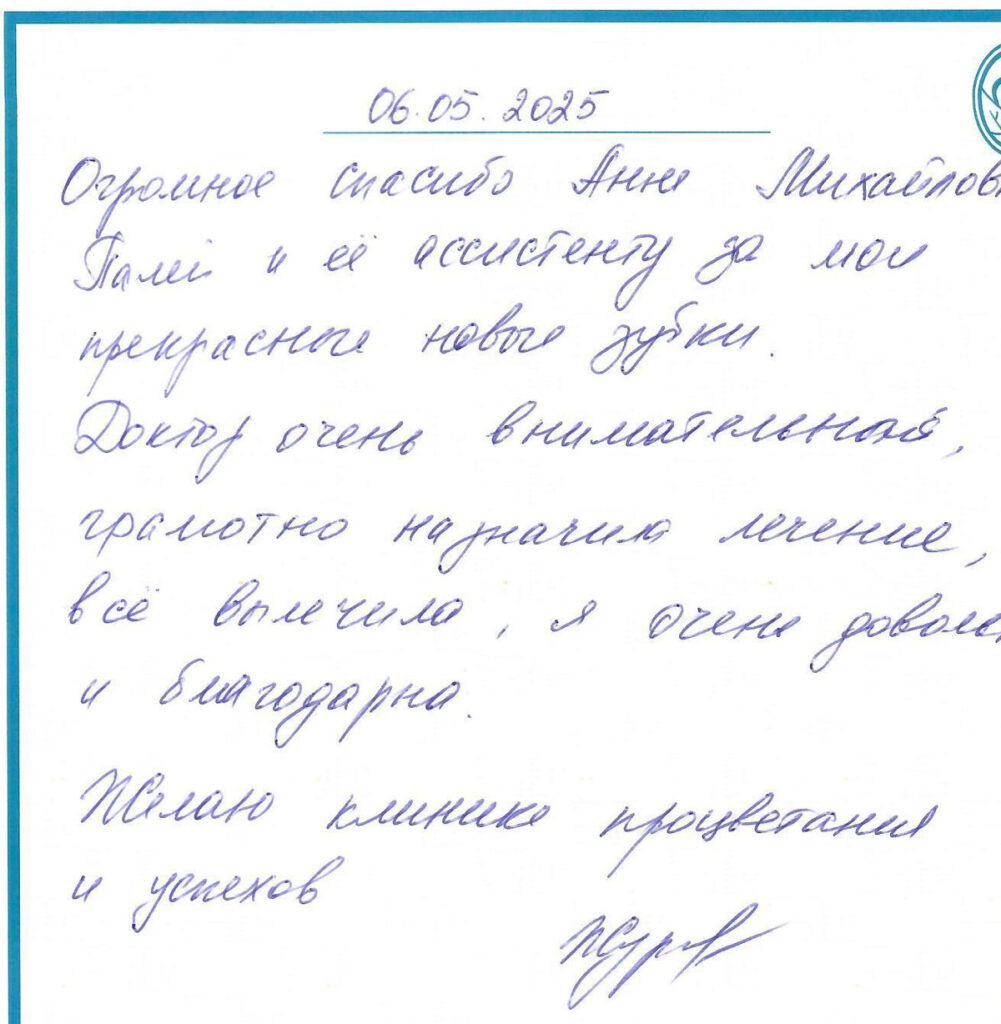 06.05.2025
Огромное спасибо Анне Михайловн
Палей и её ассистенту за мои
прекрасные новые зубки.
Доктор очень внимательная,
грамотно назначила лечение,
всё вылечила, я очень доволь
и благодарна.
Желаю клинике процветания
и успехов